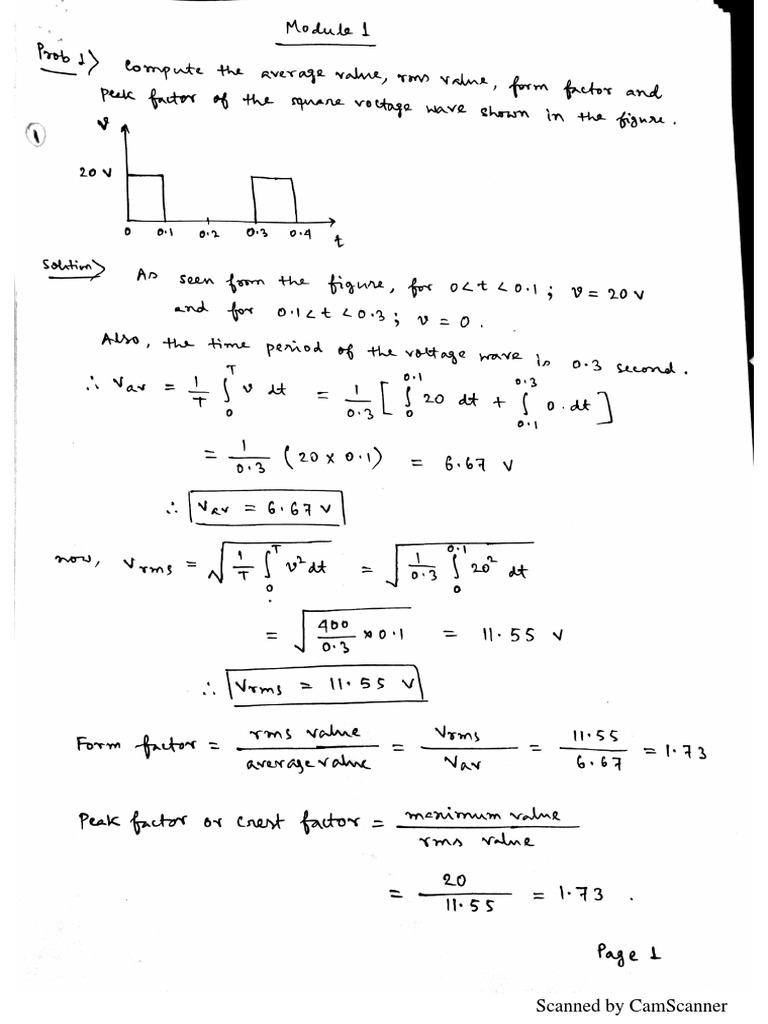 Module 1
Prob 1> Compute the average value, rms value, form factor and
peak factor of the square voltage wave shown in the figure.
1
v
20 V
0 0.1 0.2 0.3 0.4
t
Solution> As seen from the figure, for 0<t<0.1; v = 20 v
and for 0.1<t<0.3; v = 0.
Also, the time period of the voltage wave is 0.3 second.
∴ Vav = 1/T ∫₀ᵀ v dt = 1/0.3 [ ∫₀^0.1 20 dt + ∫_0.1^0.3 0.dt ]
= 1/0.3 (20 x 0.1) = 6.67 V
∴ Vav = 6.67 V
now, Vrms = √(1/T ∫₀ᵀ v² dt) = √(1/0.3 ∫₀^0.1 20² dt)
= √(400/0.3 x 0.1) = 11.55 V
∴ Vrms = 11.55 V
Form factor = rms value/average value = Vrms/Vav = 11.55/6.67 = 1.73
Peak factor or crest factor = maximum value/rms value
= 20/11.55 = 1.73.
Page 1
Scanned by CamScanner